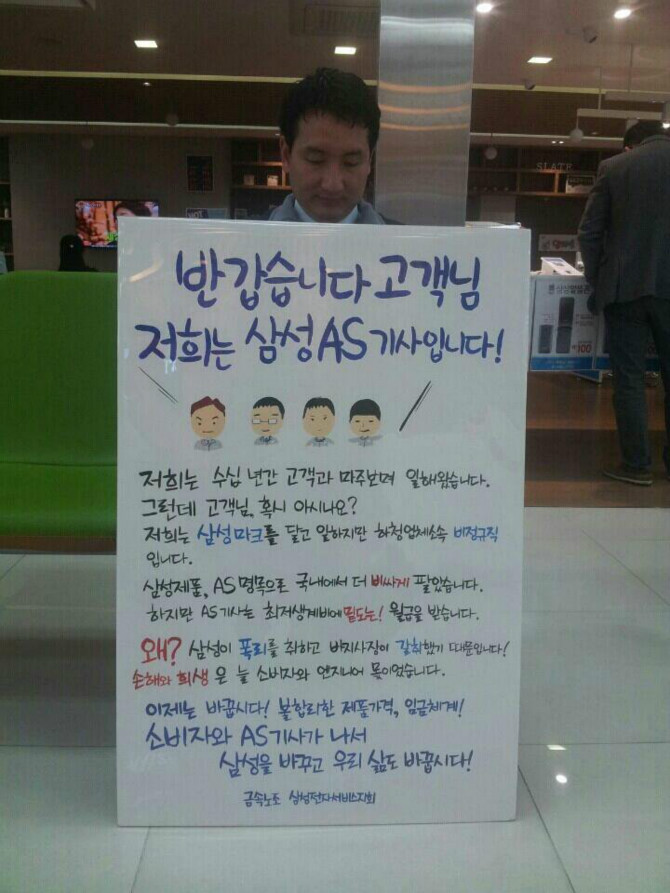 반갑습니다 고객님
저희는 삼성AS기사입니다!
저희는 수십 년간 고객과 마주보며 일해왔습니다.
그런데 고객님, 혹시 아시나요?
저희는 삼성마크를 달고 일하지만 하청업체소속 비정규직
입니다.
삼성제품, AS명목으로 국내에서 더 비싸게 팔았습니다.
하지만 AS기사는 최저생계비에 밑도는! 월급을 받습니다.
왜? 삼성이 폭리를 취하고 바지사장이 갈취했기 때문입니다!
손해와 희생은 늘 소비자와 엔지니어 몫이었습니다.
이제는 바꿉시다! 불합리한 제품가격, 임금체계!
소비자와 AS기사가 나서
삼성을 바꾸고 우리 삶도 바꿉시다!
금속노조 삼성전자서비스지회
SLATE
100